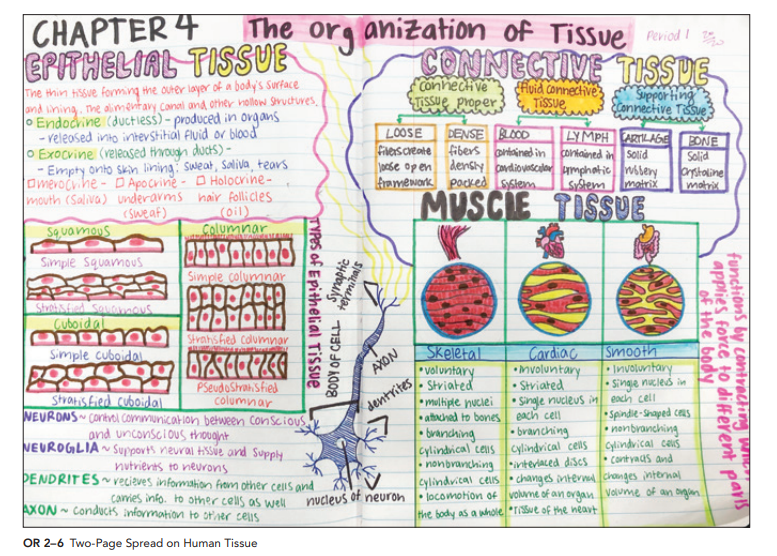 CHAPTER 4
The organization of Tissue
Period 1
EPITHELIAL TISSUE
The thin tissue forming the outer layer of a body's surface
and lining. The alimentary canal and other hollow structures.
Endocrine (ductless) - produced in organs
- released into interstitial fluid or blood
Exocrine (released through ducts) -
- Empty onto skin lining: sweat, saliva, tears
merocrine - Apocrine - Holocrine -
mouth (saliva) underarms hair follicles
(sweat) (oil)
Squamous
Simple Squamous
Stratified Squamous
Cuboidal
Simple cuboidal
Stratified cuboidal
Columnar
Simple columnar
Stratified columnar
Pseudostratified
columnar
TYPES of Epithelial Tissue
NEURONS ~ control communication between conscious
and unconscious thought
NEUROGLIA ~ Supports neural tissue and supply
nutrients to neurons
DENDRITES ~ recieves information from other cells and
carries info. to other cells as well
AXON ~ Conducts information to other cells
Synaptic
terminals
BODY OF CELL
AXON
dendrites
nucleus of neuron
CONNECTIVE TISSUE
Connective
Tissue proper
Fluid connective
Tissue
Supporting
Connective Tissue
LOOSE
fibers create
loose open
framework
DENSE
fibers
densly
packed
BLOOD
contained in
cardiovascular
system
LYMPH
contained in
lymphatic
system
CARTILAGE
Solid
rubbery
matrix
BONE
Solid
crystaline
matrix
MUSCLE TISSUE
Skeletal
• voluntary
• Striated
• multiple nuclei
• attached to bones
• branching
cylindrical cells
• nonbranching
cylindrical cells
• locomotion of
the body as a whole
Cardiac
• Involuntary
• Striated
• Single nucleus in
each cell
• branching
cylindrical cells
• interlaced discs
• changes internal
volume of an organ
• Tissue of the heart
Smooth
• Involuntary
• Single nucleus in
each cell
• Spindle-shaped cells
• nonbranching
cylindrical cells
• contracts and
changes internal
volume of an organ
functions by contracting which
applies force to different parts
of the body
OR 2–6 Two-Page Spread on Human Tissue